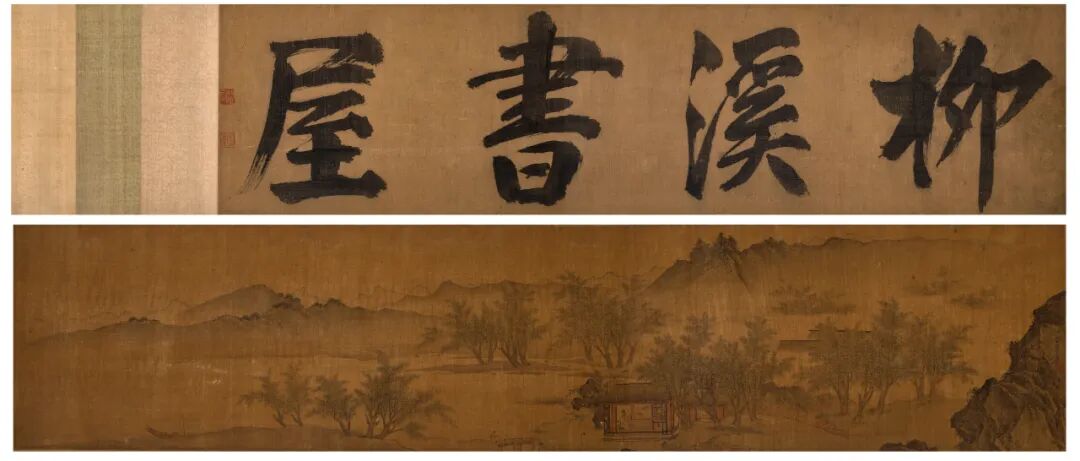 柳溪書屋